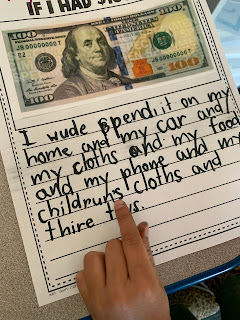 IF I HAD $1
100
I wude spend it on my
home and my car and
my cloths and my food
and my phone and my
childruns cloths and
thire tos.